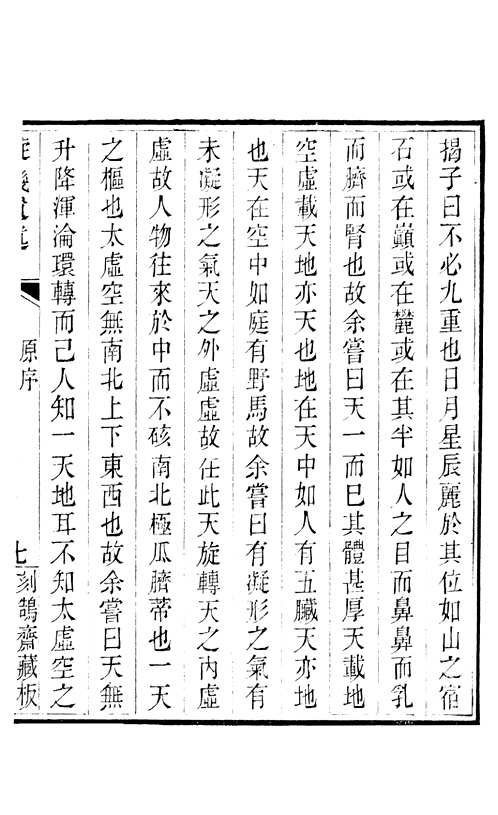 揭子曰不必九重也日月星辰麗於其位如山之宿
石或在巔或在麓或在其半如人之目而鼻鼻而乳
而臍而腎也故余嘗曰天一而已其體甚厚天載地
空虛載天地亦天也地在天中如人有五臟天亦地
也天在空中如庭有野馬故余嘗曰有凝形之氣有
未凝形之氣天之外虛虛故任此天旋轉天之內虛
虛故人物往來於中而不硋南北極瓜臍蒂也一天
之樞也太虛空無南北上下東西也故余嘗曰天無
升降渾淪環轉而已人知一天地耳不知太虛空之
原序
七
刻鵠齋藏板